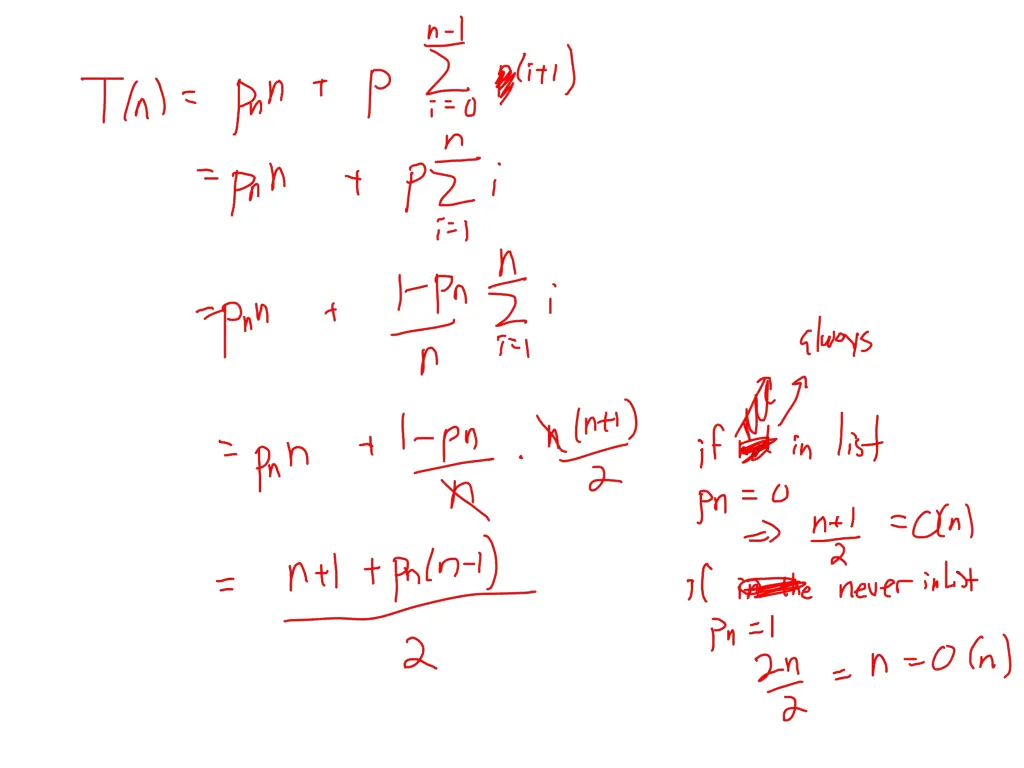 T(n) = pₙn + p ∑_{i=0}^{n-1} (i+1)
= pₙn + p ∑_{i=1}^{n} i
= pₙn + \frac{1-pₙ}{n} ∑_{i=1}^{n} i
= pₙn + \frac{1-pₙ}{n} · \frac{n(n+1)}{2}
= \frac{n+1 + pₙ(n-1)}{2}
always
if in list
pₙ = 0
⇒ \frac{n+1}{2} = O(n)
if never in list
pₙ = 1
\frac{2n}{2} = n = O(n)